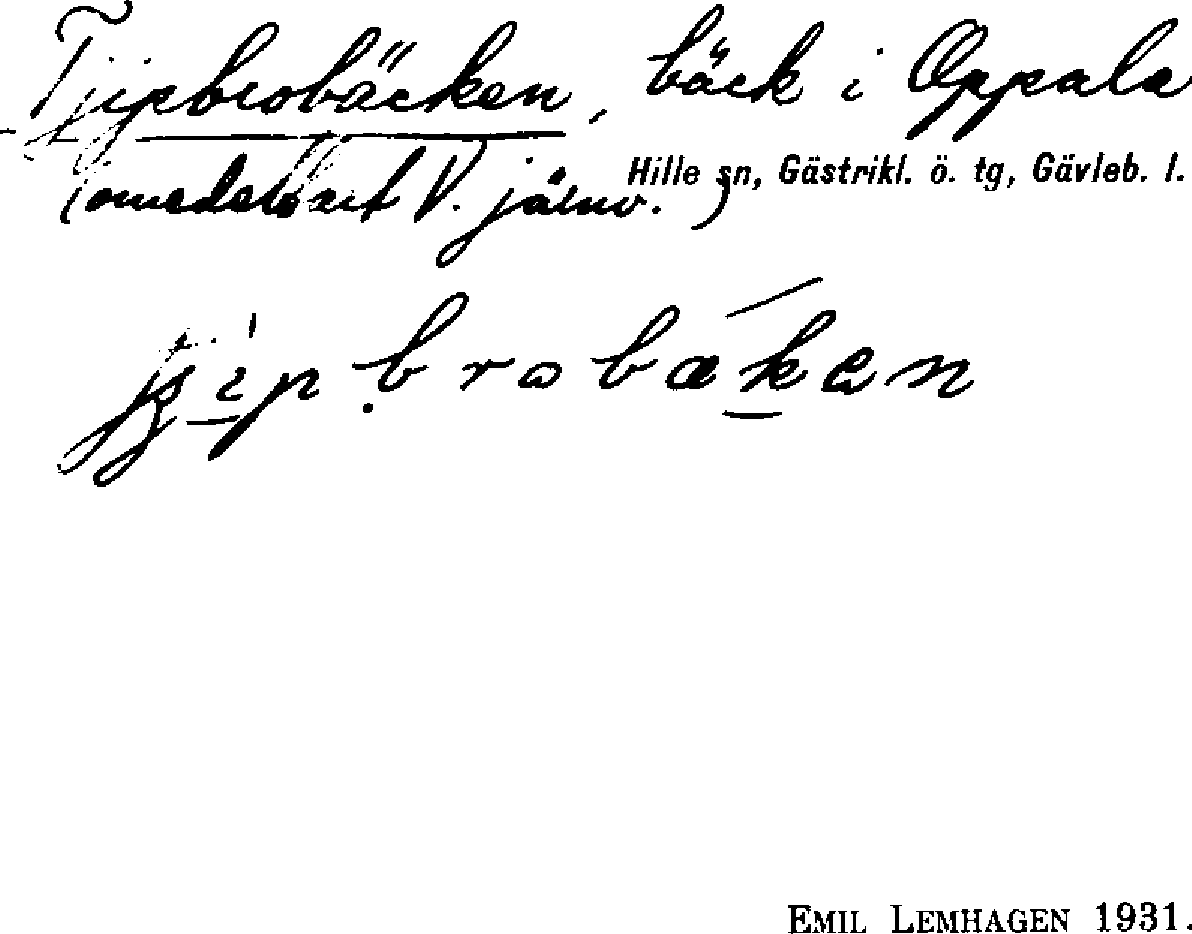 Tjipbrobäcken, bäck i Oppala
Hille sn, Gästrikl. ö. tg, Gävleb. l.
(omedelbart V. järnv.)
brobækən
EMIL LEMHAGEN 1931.